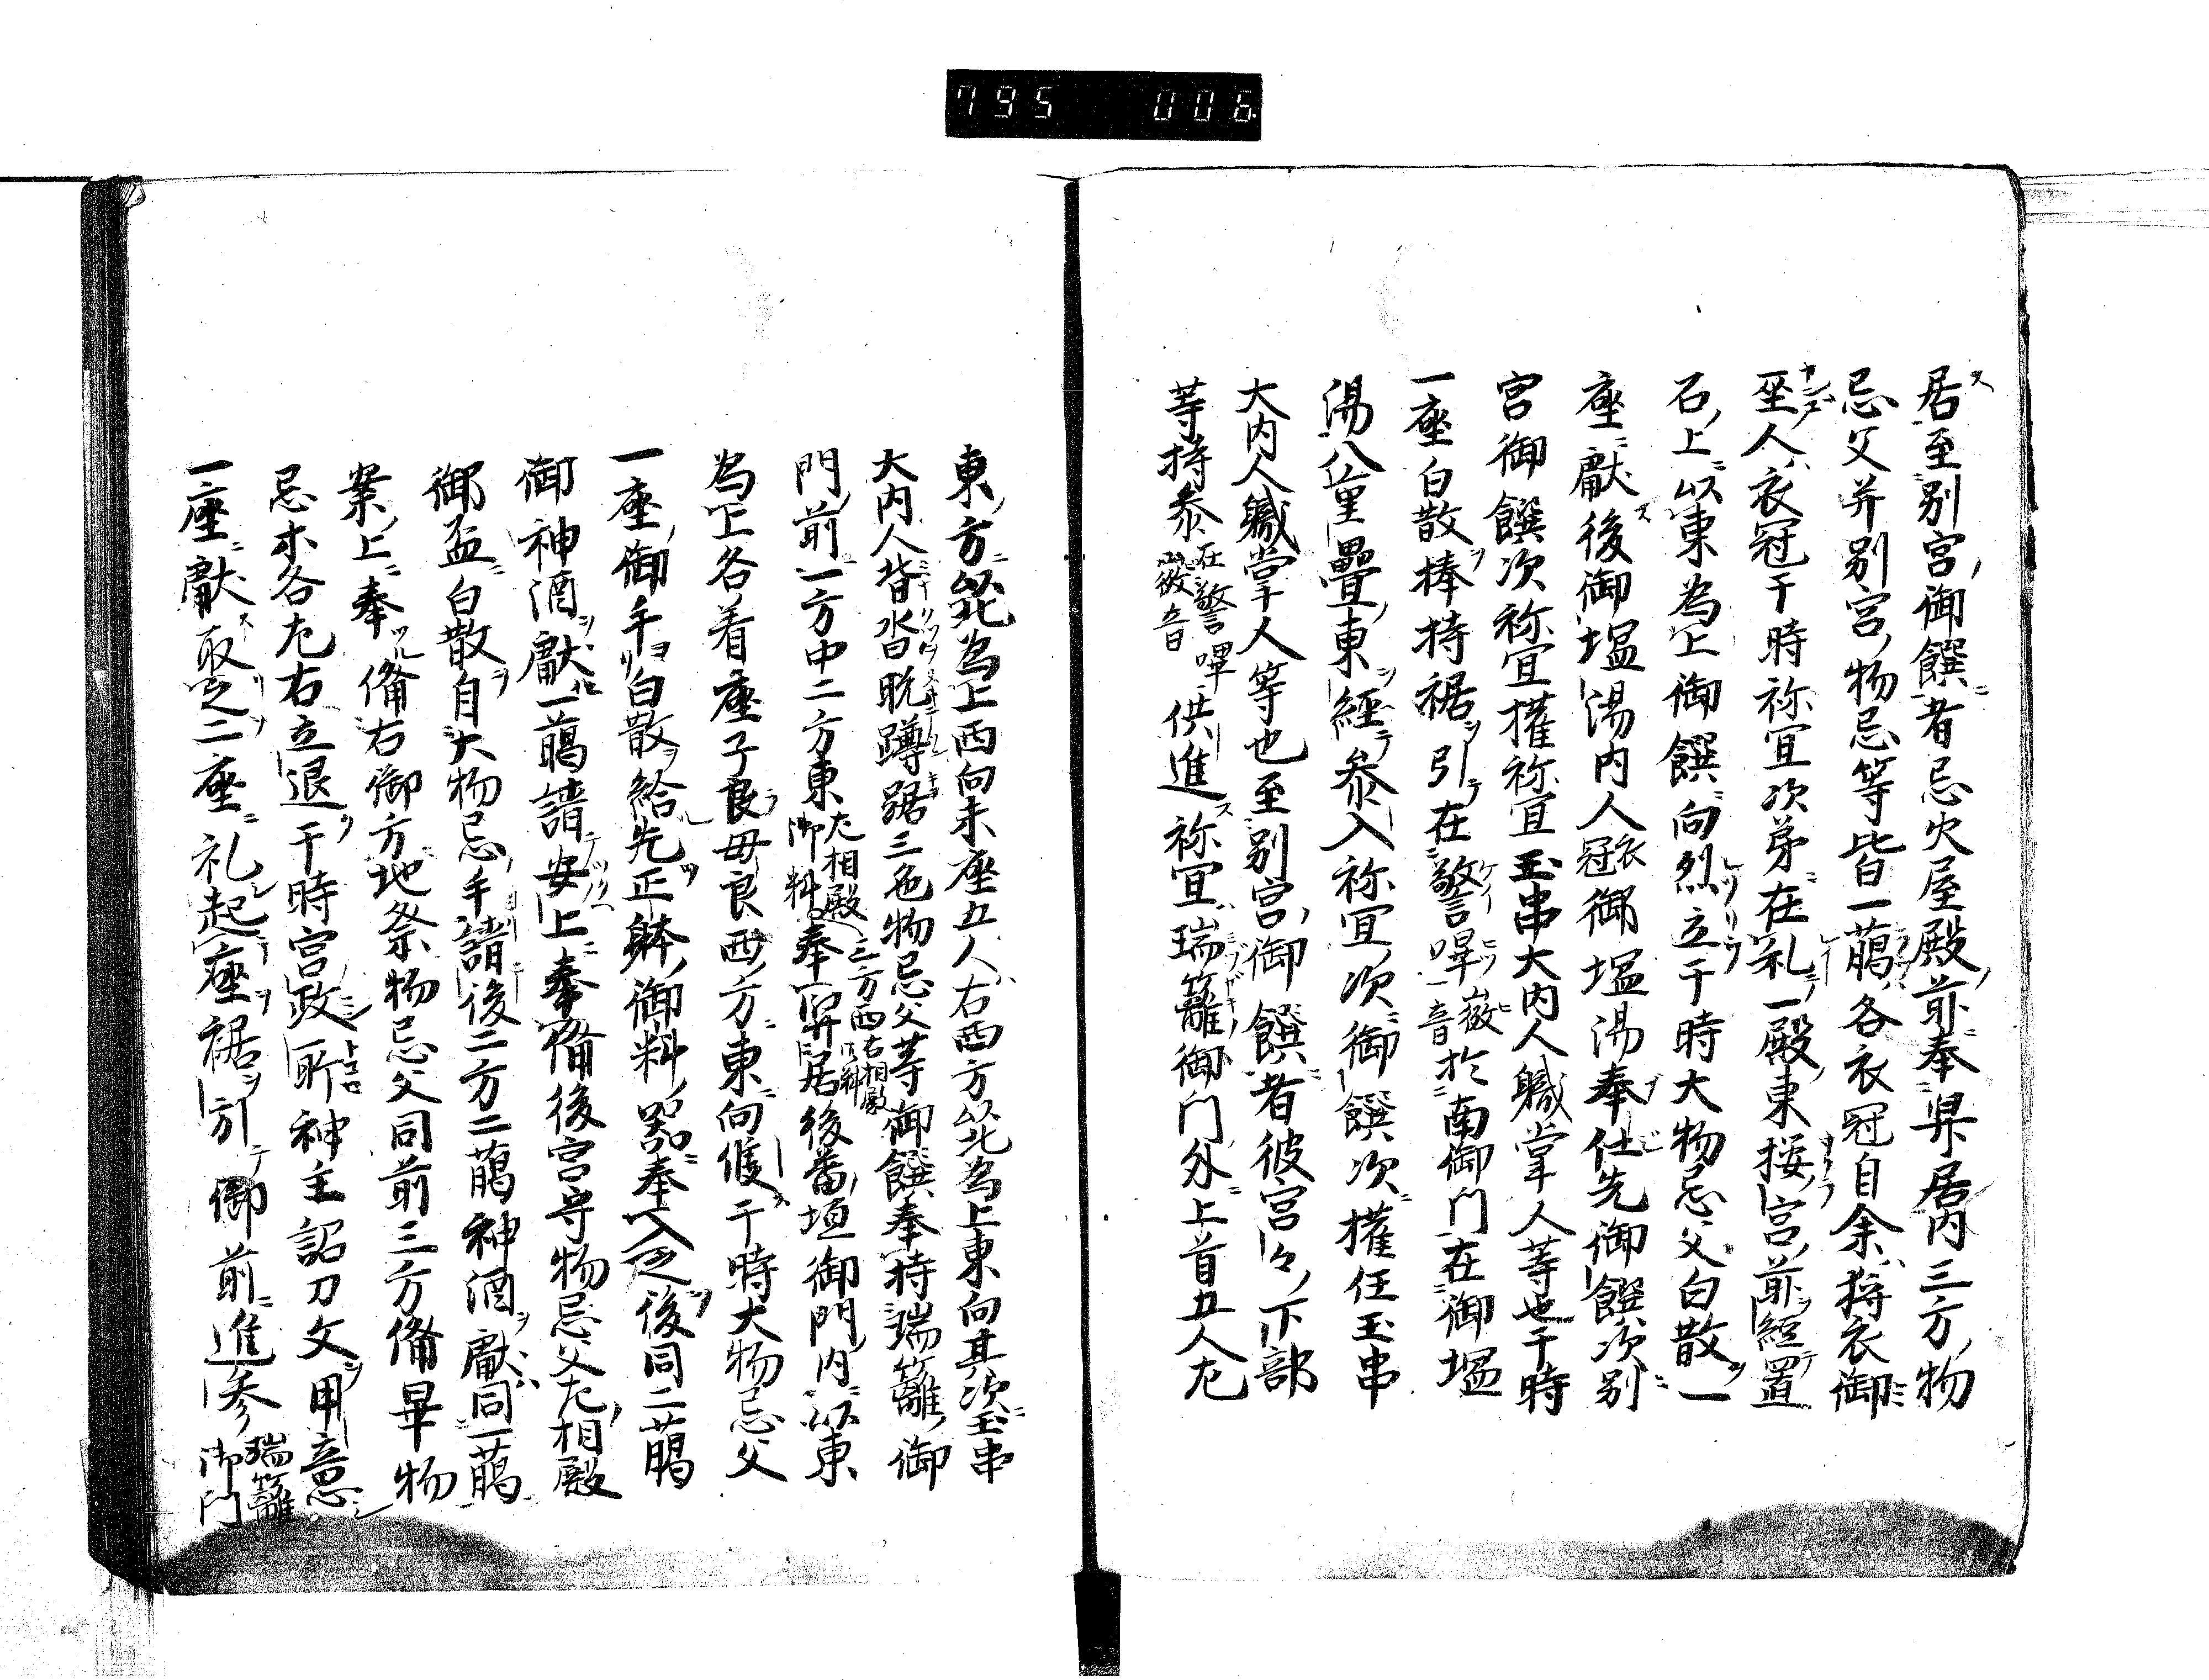 795 006
居至別宮御饌者忌火屋殿前奉舁居内三方物
忌父并別宮物忌等皆一﨟各衣冠自余狩衣御
巫人衣冠于時祢宜次第在礼一殿東按宮前経置
石上以東為上御饌向烈立于時大物忌父白散一
座献後御塩湯内人衣冠御塩湯奉仕先御饌次別
宮御饌次祢宜権祢宜玉串大内人職掌人等也于時
一座白散捧持裾引在警嗶微音於南御門在御塩
湯八重疊東経参入祢宜次御饌次権任玉串
大内人職掌人等也至別宮御饌者彼宮々下部
等持参在警嗶微音供進祢宜瑞籬御門外上首五人左
東方北為上西向末座五人右西方北為上東向其次玉串
大内人皆沓脱蹲踞三色物忌父等御饌奉持瑞籬御
門前一方中二方東左相殿御料三方西右相殿御料奉舁居後番垣御門内以東
為上各着座子良母良西方東向候于時大物忌父
一座御手白散給先正躰御料器奉入之後同二﨟
御神酒献一﨟請安上奉備後宮守物忌父左相殿
御盃白散自大物忌手請後二方二﨟神酒献同一﨟
案上奉備右御方地祭物忌父同前三方備畢物
忌木各左右立退于時宮政所神主詔刀文用意
一座献取之二座礼起座裾引御前進参瑞籬御門